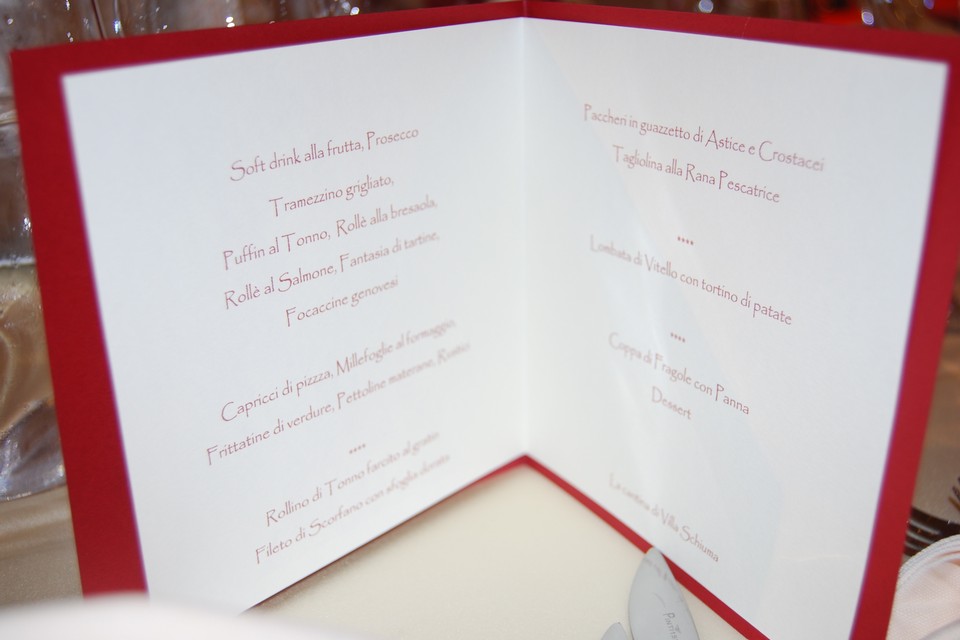 Soft drink alla frutta, Prosecco
Tramezzino grigliato,
Puffin al Tonno, Rollè alla bresaola,
Rollè al Salmone, Fantasia di tartine,
Focaccine genovesi
Capricci di pizzza, Millefoglie al formaggio,
Frittatine di verdure, Pettoline materane, Rustici
****
Rollino di Tonno farcito al gratin
Fileto di Scorfano con sfoglia dorata
Paccheri in guazzetto di Astice e Crostacei
Tagliolina alla Rana Pescatrice
****
Lombata di Vitello con tortino di patate
****
Coppa di Fragole con Panna
Dessert
La cantina di Villa Schiuma